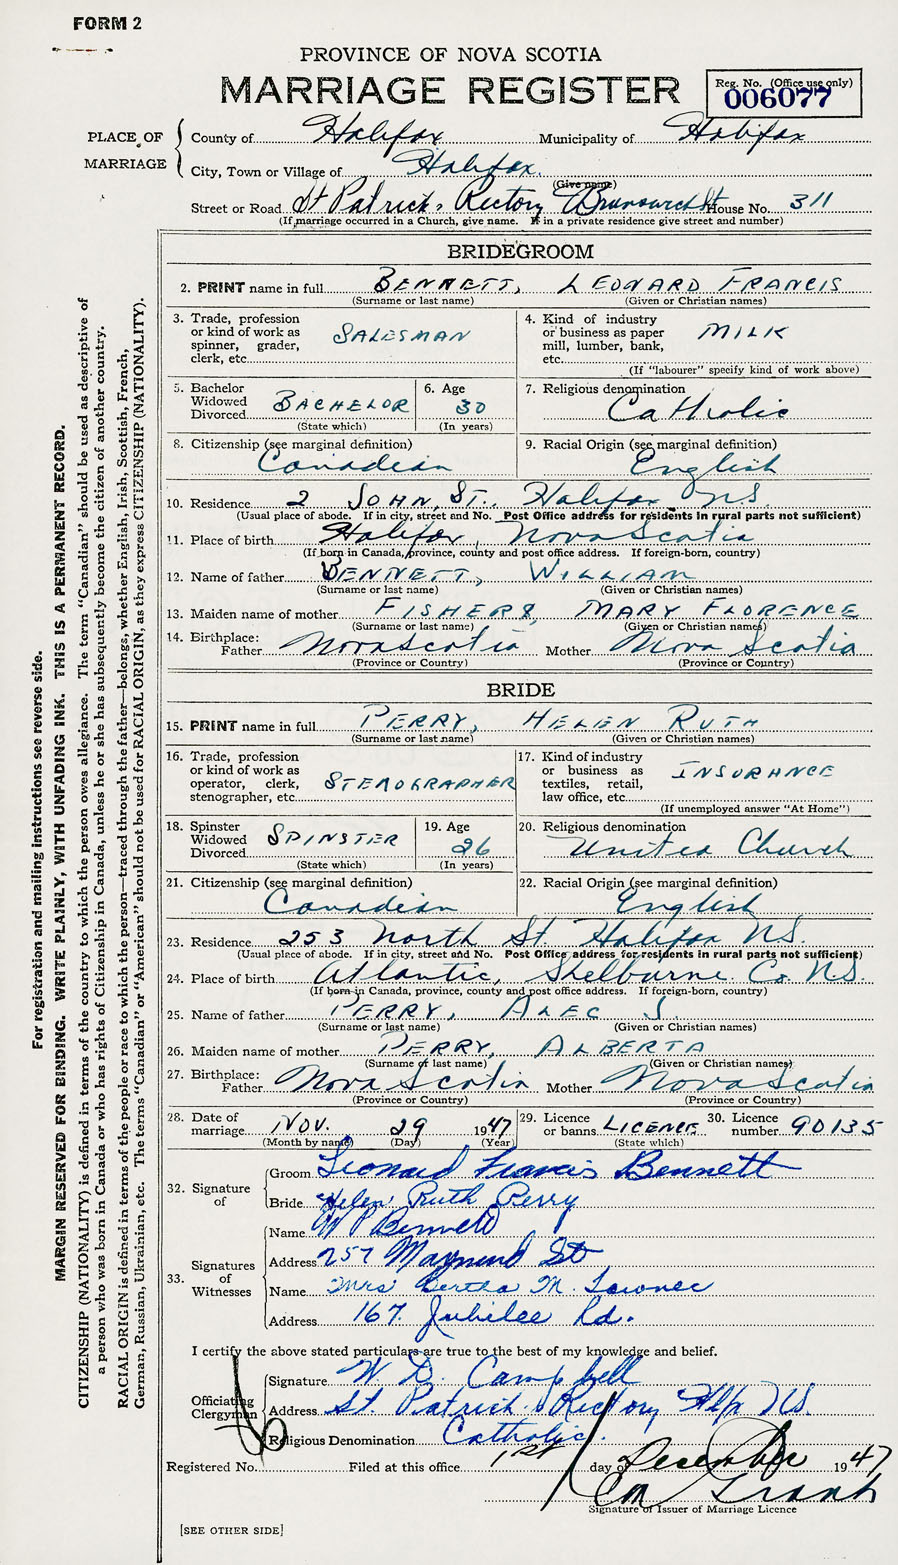 FORM 2
PROVINCE OF NOVA SCOTIA
MARRIAGE REGISTER
Reg. No. (Office use only)
006077
PLACE OF MARRIAGE
County of Halifax Municipality of Halifax
City, Town or Village of Halifax
(Give name)
Street or Road St Patrick's Rectory Brunswick St House No. 311
(If marriage occurred in a Church, give name. If in a private residence give street and number)
BRIDEGROOM
2. PRINT name in full BENNETT, LEONARD FRANCIS
(Surname or last name) (Given or Christian names)
3. Trade, profession or kind of work as spinner, grader, clerk, etc. SALESMAN
4. Kind of industry or business as paper mill, lumber, bank, etc. MILK
(If "labourer" specify kind of work above)
5. Bachelor Widowed Divorced BACHELOR
(State which)
6. Age 30
(In years)
7. Religious denomination Catholic
8. Citizenship (see marginal definition) Canadian
9. Racial Origin (see marginal definition) English
10. Residence 2 JOHN, ST., Halifax NS.
(Usual place of abode. If in city, street and No. Post Office address for residents in rural parts not sufficient)
11. Place of birth Halifax, Nova Scotia
(If born in Canada, province, county and post office address. If foreign-born, country)
12. Name of father BENNETT, WILLIAM
(Surname or last name) (Given or Christian names)
13. Maiden name of mother MARY FLORENCE
(Surname or last name) (Given or Christian names)
14. Birthplace: Father Nova Scotia Mother Nova Scotia
(Province or Country) (Province or Country)
BRIDE
15. PRINT name in full PERRY, HELEN RUTH
(Surname or last name) (Given or Christian names)
16. Trade, profession or kind of work as operator, clerk, stenographer, etc. STENOGRAPHER
17. Kind of industry or business as textiles, retail, law office, etc. INSURANCE
(If unemployed answer "At Home")
18. Spinster Widowed Divorced SPINSTER
(State which)
19. Age 26
(In years)
20. Religious denomination United Church
21. Citizenship (see marginal definition) Canadian
22. Racial Origin (see marginal definition) English
23. Residence 253 North St. Halifax NS.
(Usual place of abode. If in city, street and No. Post Office address for residents in rural parts not sufficient)
24. Place of birth Atlantic, Shelburne Co. N.S.
(If born in Canada, province, county and post office address. If foreign-born, country)
25. Name of father PERRY, ALEC J.
(Surname or last name) (Given or Christian names)
26. Maiden name of mother PERRY, ALBERTA
(Surname or last name) (Given or Christian names)
27. Birthplace: Father Nova Scotia Mother Nova Scotia
(Province or Country) (Province or Country)
28. Date of marriage NOV. 29 1947
(Month by name) (Day) (Year)
29. Licence or banns LICENCE
(State which)
30. Licence number 90135
32. Signature of
Groom Leonard Francis Bennett
Bride Helen Ruth Perry
33. Signatures of Witnesses
Name W P Bennett
Address 257 Maynard St
Name Mrs Bertha M.
Address 167 Jubilee Rd.
I certify the above stated particulars are true to the best of my knowledge and belief.
Officiating Clergyman
Signature W. D. Campbell
Address St. Patrick's Rectory Hfx NS.
Religious Denomination Catholic.
Registered No. Filed at this office 1st day of December 1947
Signature of Issuer of Marriage Licence
[SEE OTHER SIDE]
For registration and mailing instructions see reverse side.
MARGIN RESERVED FOR BINDING. WRITE PLAINLY, WITH UNFADING INK. THIS IS A PERMANENT RECORD.
CITIZENSHIP (NATIONALITY) is defined in terms of the country to which the person owes allegiance. The term "Canadian" should be used as descriptive of
a person who was born in Canada or who has rights of Citizenship in Canada, unless he or she has subsequently become the citizen of another country.
RACIAL ORIGIN is defined in terms of the people or race to which the person—traced through the father—belongs, whether English, Irish, Scottish, French,
German, Russian, Ukrainian, etc. The terms "Canadian" or "American" should not be used for RACIAL ORIGIN, as they express CITIZENSHIP (NATIONALITY).